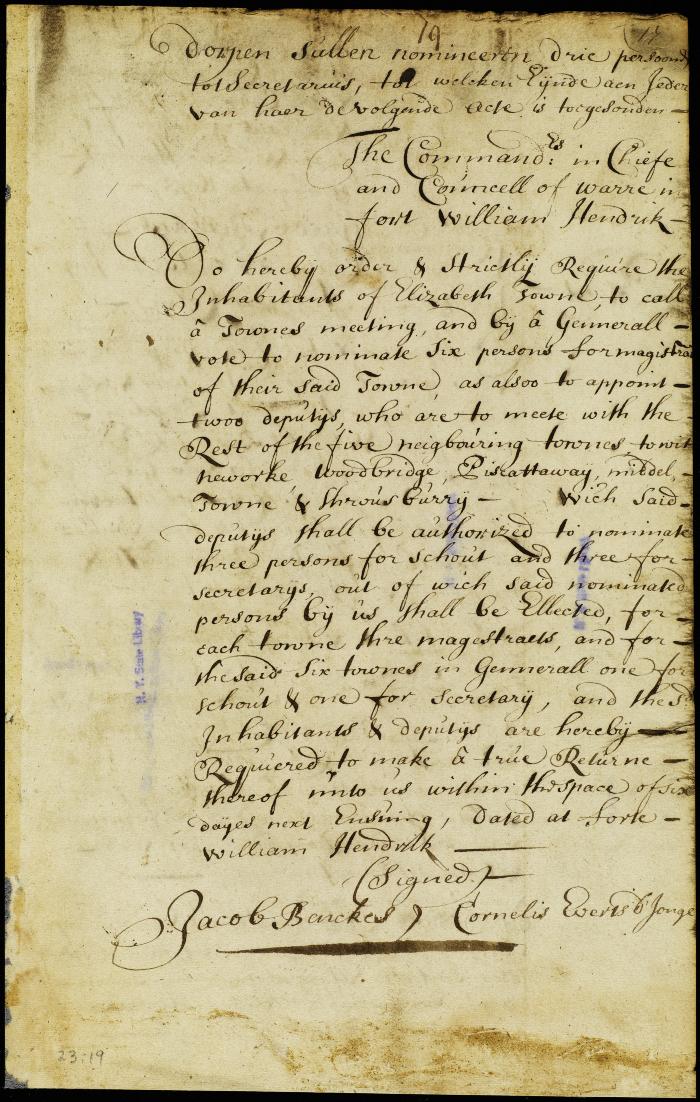 19
17
Dorpen Sullen nomineeren drie persoonē
tot Secretariis, tot welcken Eijnde aen Jeder
van haer de volgende Acte is toegesonden —
The Command:rs in Chiefe
and Councell of warre in
fort William Hendrik —
Do hereby order & Strictly Require the
Inhabitants of Elizabeth Towne, to call
â Townes meeting, and by â Gennerall —
vote to nominate Six persons for magistra
of their said Towne, as alsoo to appoint —
twoo deputys, who are to meete with the
Rest of the five neigbouring townes, to wit
neworke, Woodbridge, Piscattaway, middel,
Towne & Shrousburry — Wich said
deputijs shall be authorized to nominate
three persons for schout and three for
secretarijs, out of wich said nominated
persons by us shall be Ellected, for —
each towne thre magestraets, and for —
the said Six townes in Gennerall one for
schout & one for secretarij, and the sd
Inhabitants & deputijs are hereby —
Requiered to make â true Returne —
thereof unto us within the space of six
dayes next Ensuing, Dated at forte —
William Hendrik —
(Signed)
Jacob Benckes) Cornelis Everts d' Jonge
N. Y. State Library
23:19